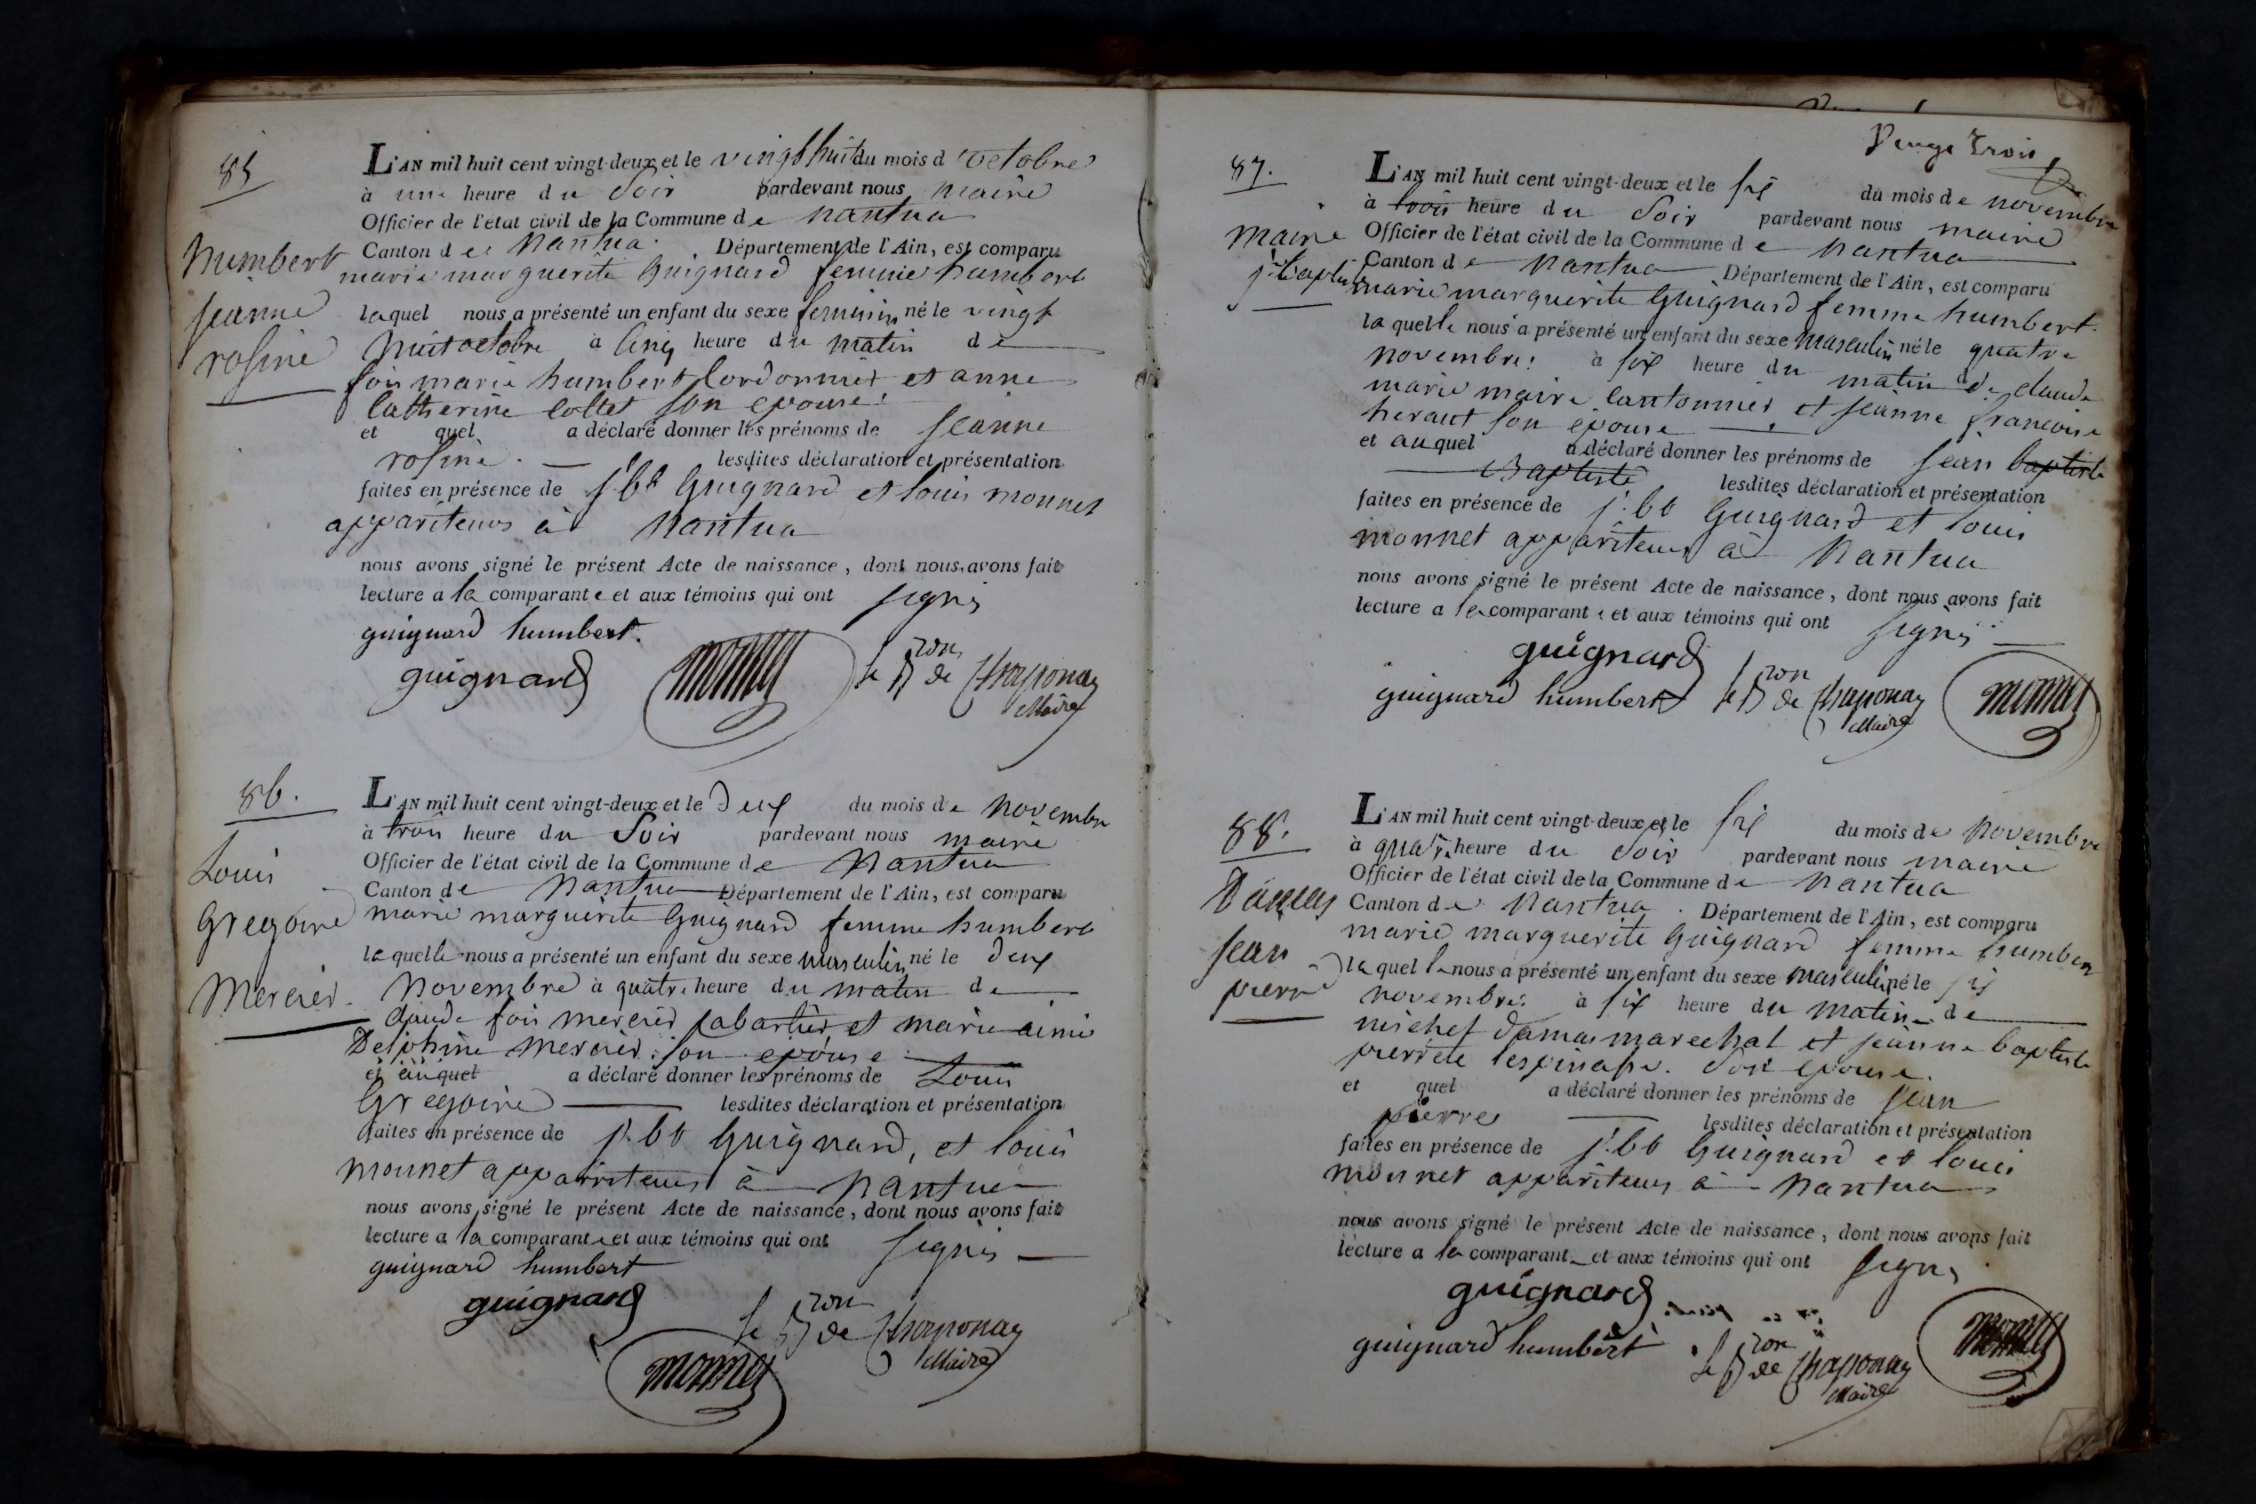 85
humbert
jeanne
rosine
L'AN mil huit cent vingt-deux et le vingt huit du mois d'octobre
à une heure du soir pardevant nous maire
Officier de l'état civil de la Commune de nantua
Canton de nantua Département de l'Ain, est comparu
marie marguerite Guignard femme humbert
laquel nous a présenté un enfant du sexe feminin né le vingt
huit octobre à cinq heure du matin de
marie humbert cordonnier et anne
catherine collet son epouse
et quel a déclaré donner les prénoms de jeanne
rosine. lesdites déclaration et présentation
faites en présence de j. bt Guignard et louis monnet
appariteurs à nantua
nous avons signé le présent Acte de naissance, dont nous avons fait
lecture a la comparante et aux témoins qui ont signés
guignard humbert.
guignard monnet le Bron de Chaponay
Maire
86.
Louis
Gregoire
Mercier.
L'AN mil huit cent vingt-deux et le deux du mois de novembre
à trois heure du soir pardevant nous maire
Officier de l'état civil de la Commune de nantua
Canton de nantua Département de l'Ain, est comparu
marie marguerite Guignard femme humbert
laquelle nous a présenté un enfant du sexe masculin né le deux
novembre à quatre heure du matin de
claude mercier cabartier et marie aimé
Delphine mercier son epouse
et auquel a déclaré donner les prénoms de Louis
Gregoire lesdites déclaration et présentation
faites en présence de j. bt Guignard, et louis
monnet appariteurs à nantua
nous avons signé le présent Acte de naissance, dont nous avons fait
lecture a la comparante et aux témoins qui ont signés
guignard humbert
guignard le Bron de Chaponay
monnet Maire
Vingt trois
87.
maire
j. baptiste
L'AN mil huit cent vingt-deux et le six du mois de novembre
à trois heure du soir pardevant nous maire
Officier de l'état civil de la Commune de nantua
Canton de nantua Département de l'Ain, est comparu
marie marguerite Guignard femme humbert.
laquelle nous a présenté un enfant du sexe masculin né le quatre
novembre à six heure du matin de claude
marie maire cantonnier et jeanne francoise
heraut son epouse
et auquel a déclaré donner les prénoms de jean baptiste
Baptiste lesdites déclaration et présentation
faites en présence de j. bt Guignard et louis
monnet appariteurs à nantua
nous avons signé le présent Acte de naissance, dont nous avons fait
lecture a la comparante et aux témoins qui ont signés
guignard
guignard humbert le Bron de Chaponay monnet
Maire
88.
Damas
jean
pierre
L'AN mil huit cent vingt-deux et le six du mois de novembre
à quatre heure du soir pardevant nous maire
Officier de l'état civil de la Commune de nantua
Canton de nantua. Département de l'Ain, est comparu
marie marguerite Guignard femme humbert
laquelle nous a présenté un enfant du sexe masculin né le six
novembre à six heure du matin de
michel damas marechal et jeanne baptiste
pierrete lespinasse. son epouse.
et quel a déclaré donner les prénoms de jean
pierre lesdites déclaration et présentation
faites en présence de j. bt Guignard et louis
monnet appariteurs à nantua
nous avons signé le présent Acte de naissance, dont nous avons fait
lecture a la comparante et aux témoins qui ont signés
guignard
guignard humbert le Bron de Chaponay monnet
Maire